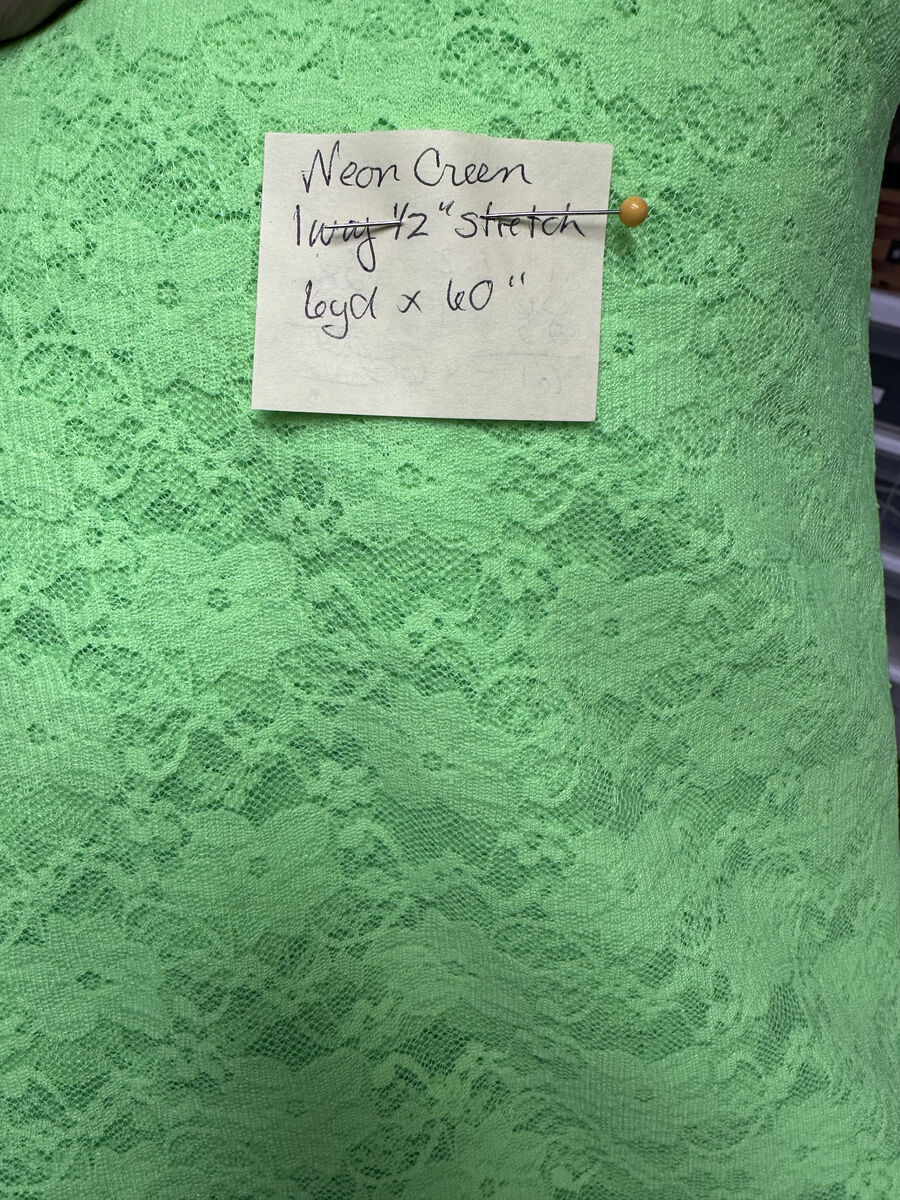 Neon Green
1 way 1/2" stretch
6yd x 60"